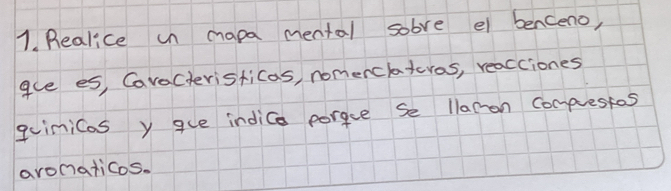 1. Realice un mapa mental sobre el benceno,
que es, Características, nomenclaturas, reacciones
quimicas y que indica porque se llaman compuestos
aromaticos.